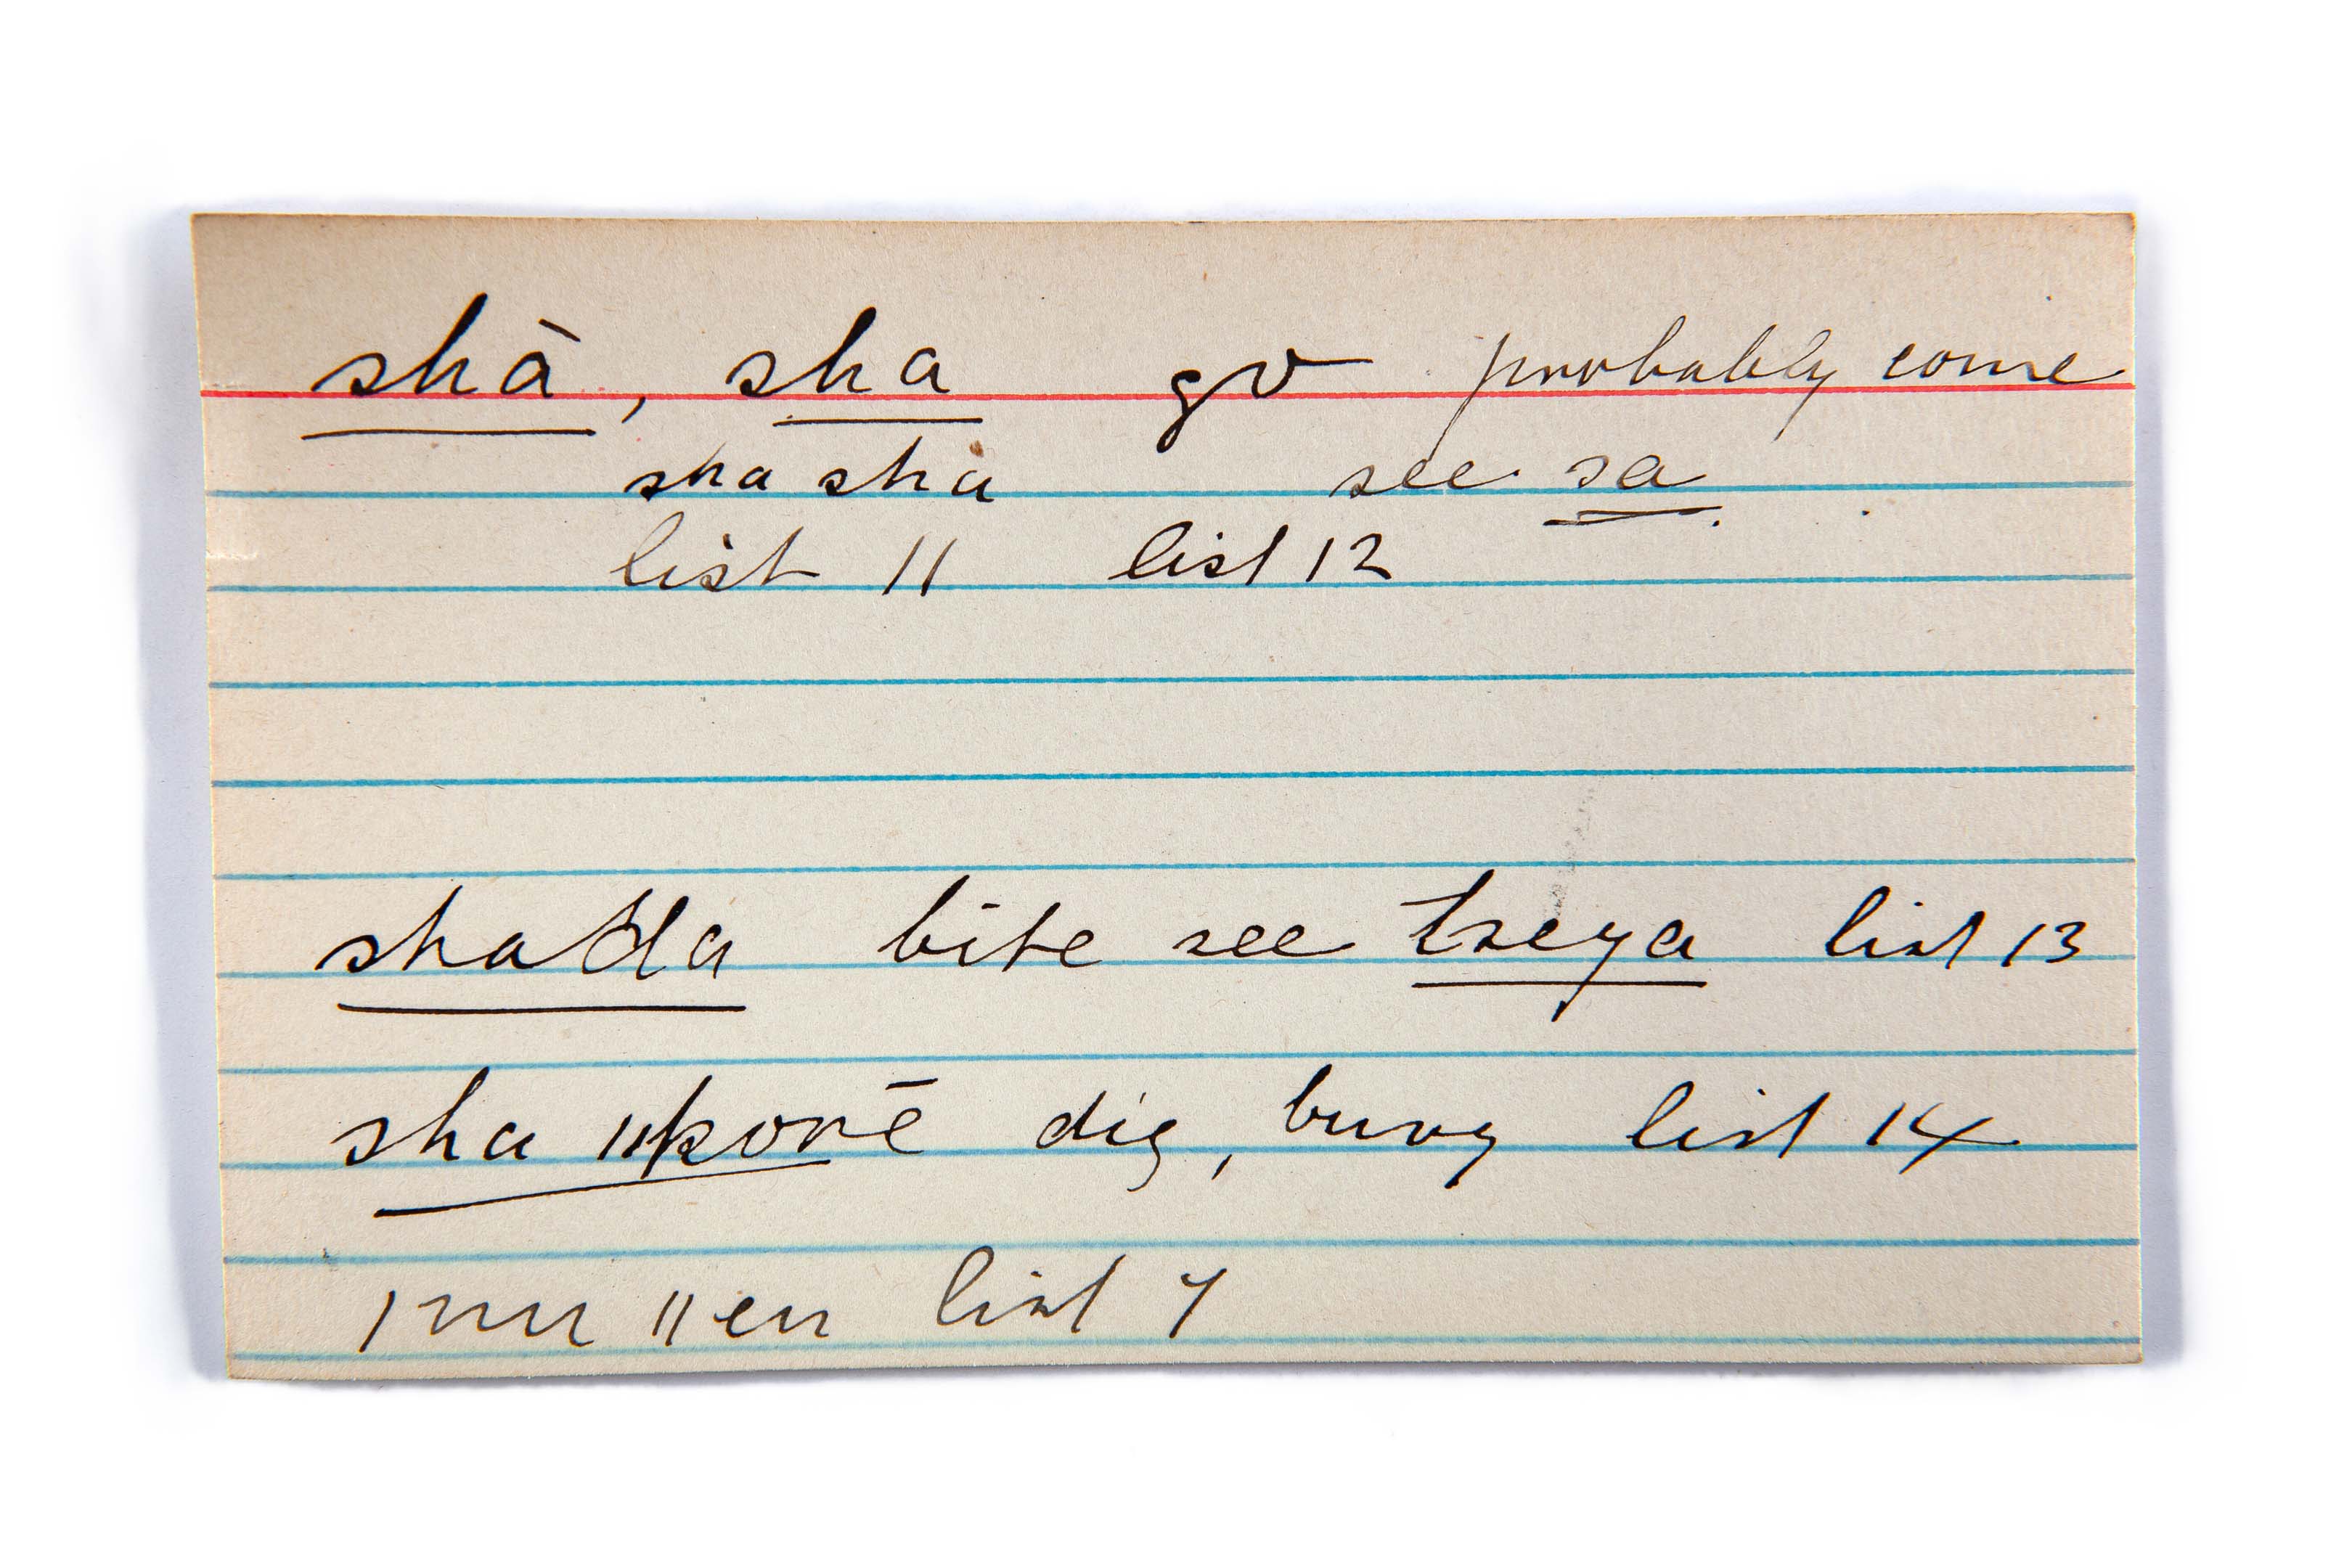 shā, sha go probably come
sha sha see sa
list 11 list 12
bite see tseya list 13
sha ǁkorē dig, bury list 14
ǁen list 7